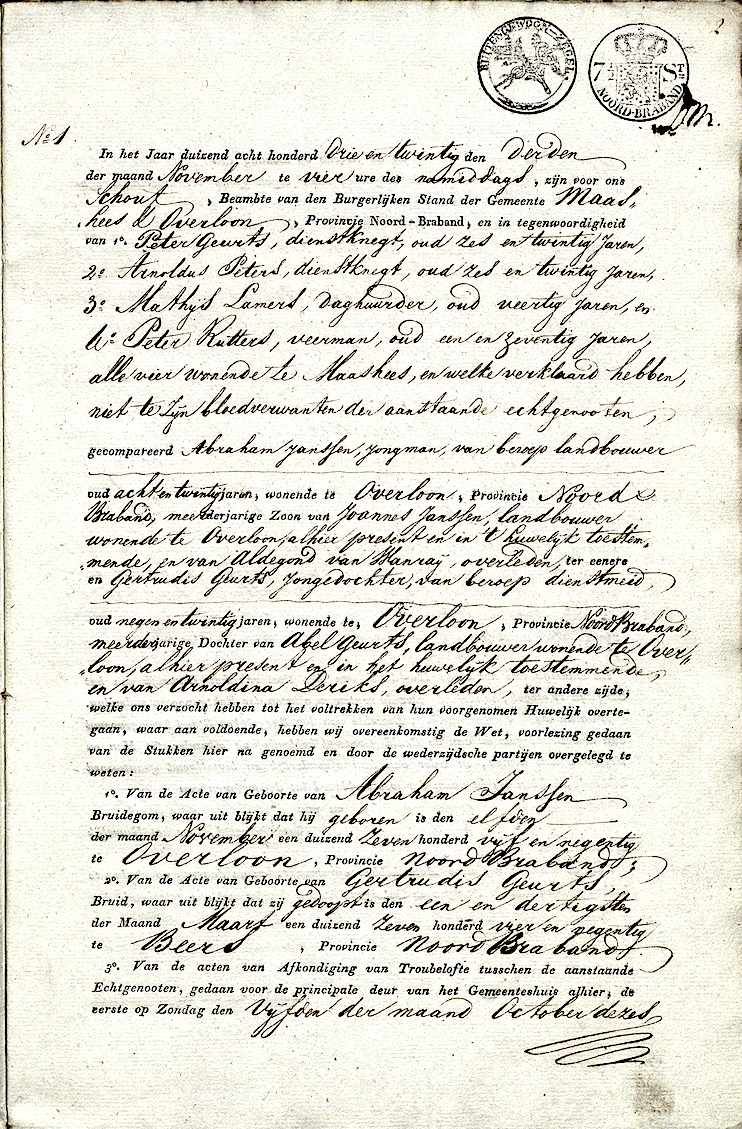 2
BUITENGEWOON-ZEGEL
7½ ST.
NOORD-BRABAND
No 1
In het Jaar duizend acht honderd Drie en twintig den Derden
der maand November te vier ure des namiddags, zijn voor ons
Schout, Beambte van den Burgerlijken Stand der Gemeente Maas„
„hees & Overloon, Provincie Noord-Braband, en in tegenwoordigheid
van 1o. Peter Geurts, dienstknegt, oud zes en twintig Jaren,
2o Arnoldus Peters, dienstknegt, oud zes en twintig Jaren,
3o Mathijs Lamers, Daghuurder, oud veertig Jaren, en
4o Peter Rutters, veerman, oud een en zeventig Jaren,
alle vier wonende te Maashees, en welke verklaard hebben,
niet te Zijn bloedverwanten der aanstaande echtgenooten,
gecompareerd Abraham Janssen, Jongman, van beroep landbouwer
oud acht en twintig jaren, wonende te Overloon, Provincie Noord
Braband, meerderjarige Zoon van Joannes Janssen, landbouwer
wonende te Overloon, alhier present en in 't huwelijk toestem„
„mende, en van Aldegond van Wanraij, overleden, ter eenere
en Gertrudis Geurts, Jongedochter, van beroep dienstmeid,
oud negen en twintig jaren, wonende te, Overloon, Provincie Noord Braband,
meerderjarige Dochter van Abel Geurts, landbouwer wonende te Over„
„loon, alhier present en in het huwelijk toestemmende,
en van Arnoldina Deriks, overleden, ter andere zijde,
welke ons verzocht hebben tot het voltrekken van hun voorgenomen Huwelijk overte-
gaan, waar aan voldoende, hebben wij overeenkomstig de Wet, voorlezing gedaan
van de Stukken hier na genoemd en door de wederzijdsche partijen overgelegd te
weten:
1o. Van de Acte van Geboorte van Abraham Janssen
Bruidegom, waar uit blijkt dat hij geboren is den elfden
der maand November een duizend Zeven honderd vijf en negentig
te Overloon, Provincie Noord Braband;
2o. Van de Acte van Geboorte van Gertrudis Geurts,
Bruid, waar uit blijkt dat zij gedoopt is den een en dertigsten
der Maand Maart een duizend Zeven honderd vier en negentig
te Beers, Provincie Noord Braband.
3o. Van de acten van Afkondiging van Troubelofte tusschen de aanstaande
Echtgenooten, gedaan voor de principale deur van het Gemeenteshuis alhier; de
eerste op Zondag den Vijfden der maand October dezes